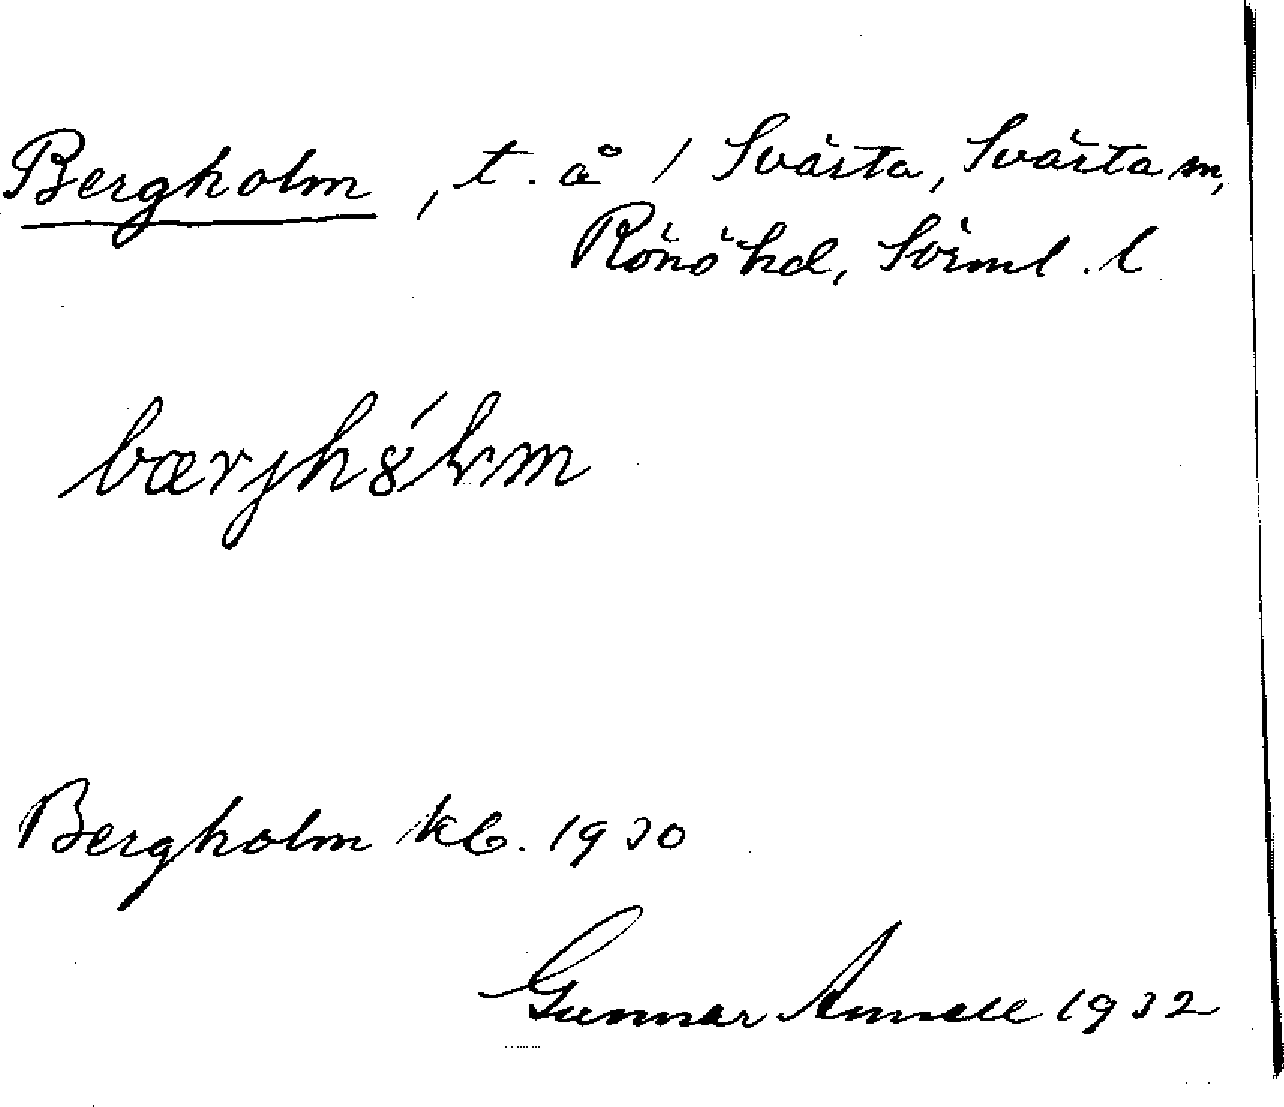 Bergholm, t. å / Svärta, Svärta sn,
Rönö hd, Sörml. l
Bergholm kb. 1930
Gunnar Annell 1932